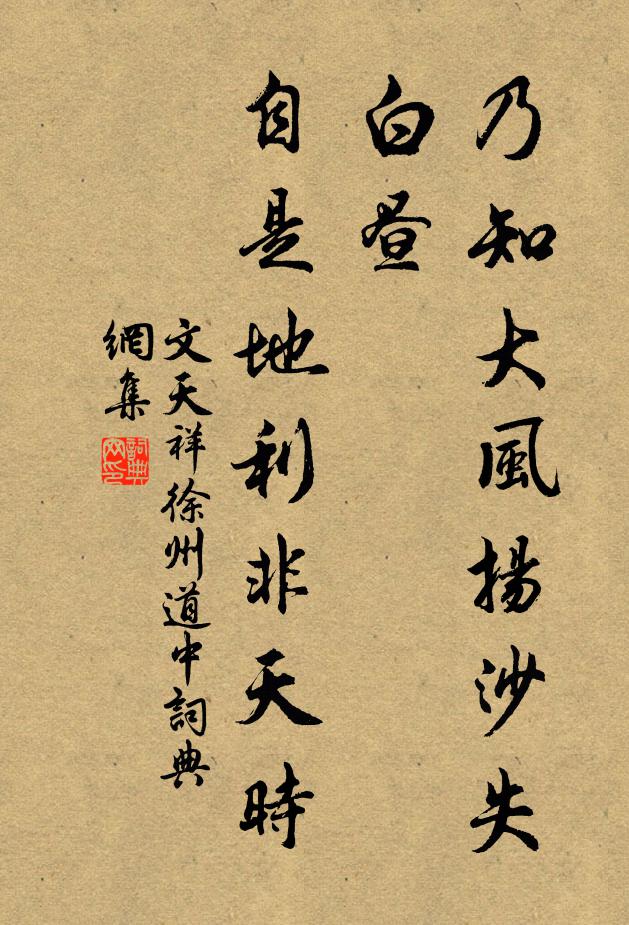 乃知大風揚沙失
白晝
自是地利非天時
文天祥徐州道中詞典
網集
詞典網印